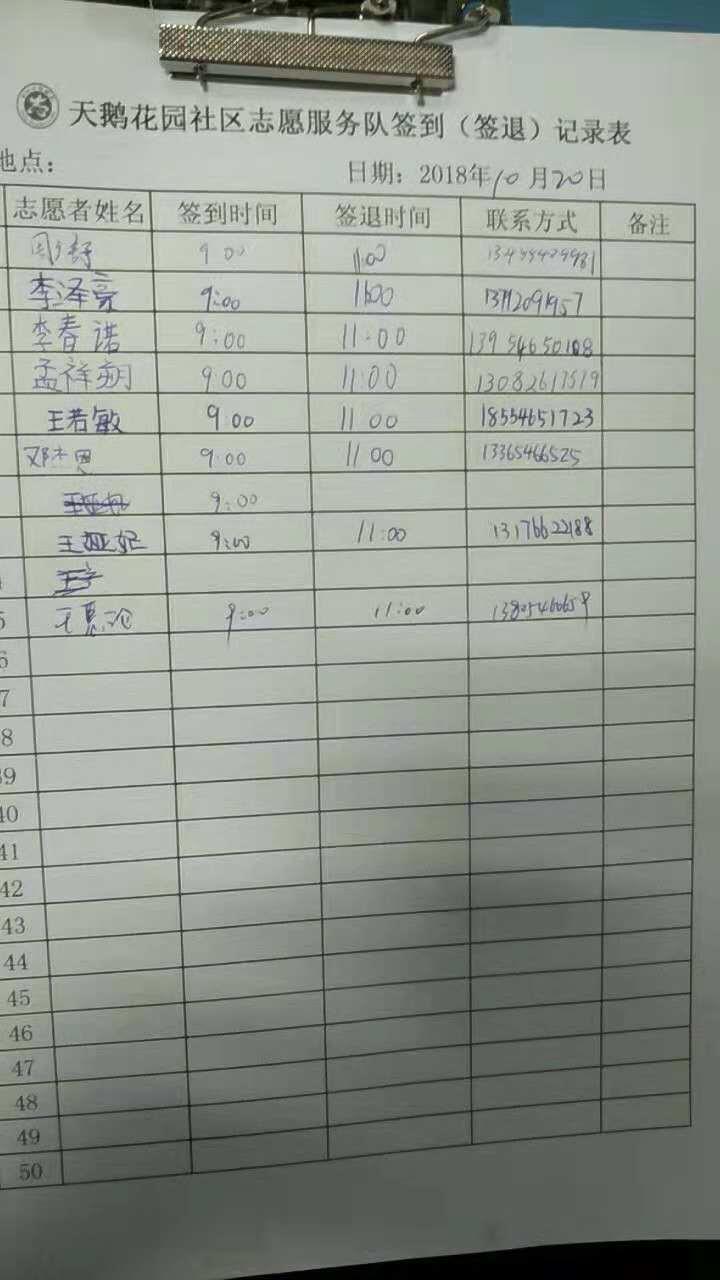 天鹅花园社区志愿服务队签到（签退）记录表
地点： 日期：2018年10月20日
志愿者姓名 签到时间 签退时间 联系方式 备注
9 00 11:00
李泽亮 9:00 11:00
李春诺 9:00 11:00 13954650108
孟祥朔 9:00 11:00 13082617519
王若敏 9:00 11 00 18554651723
9:00 11 00 13365466525
9:00
王娅妃 9:00 11:00 13176622188
9:00 11:00
6
7
8
39
40
41
42
43
44
45
46
47
48
49
50